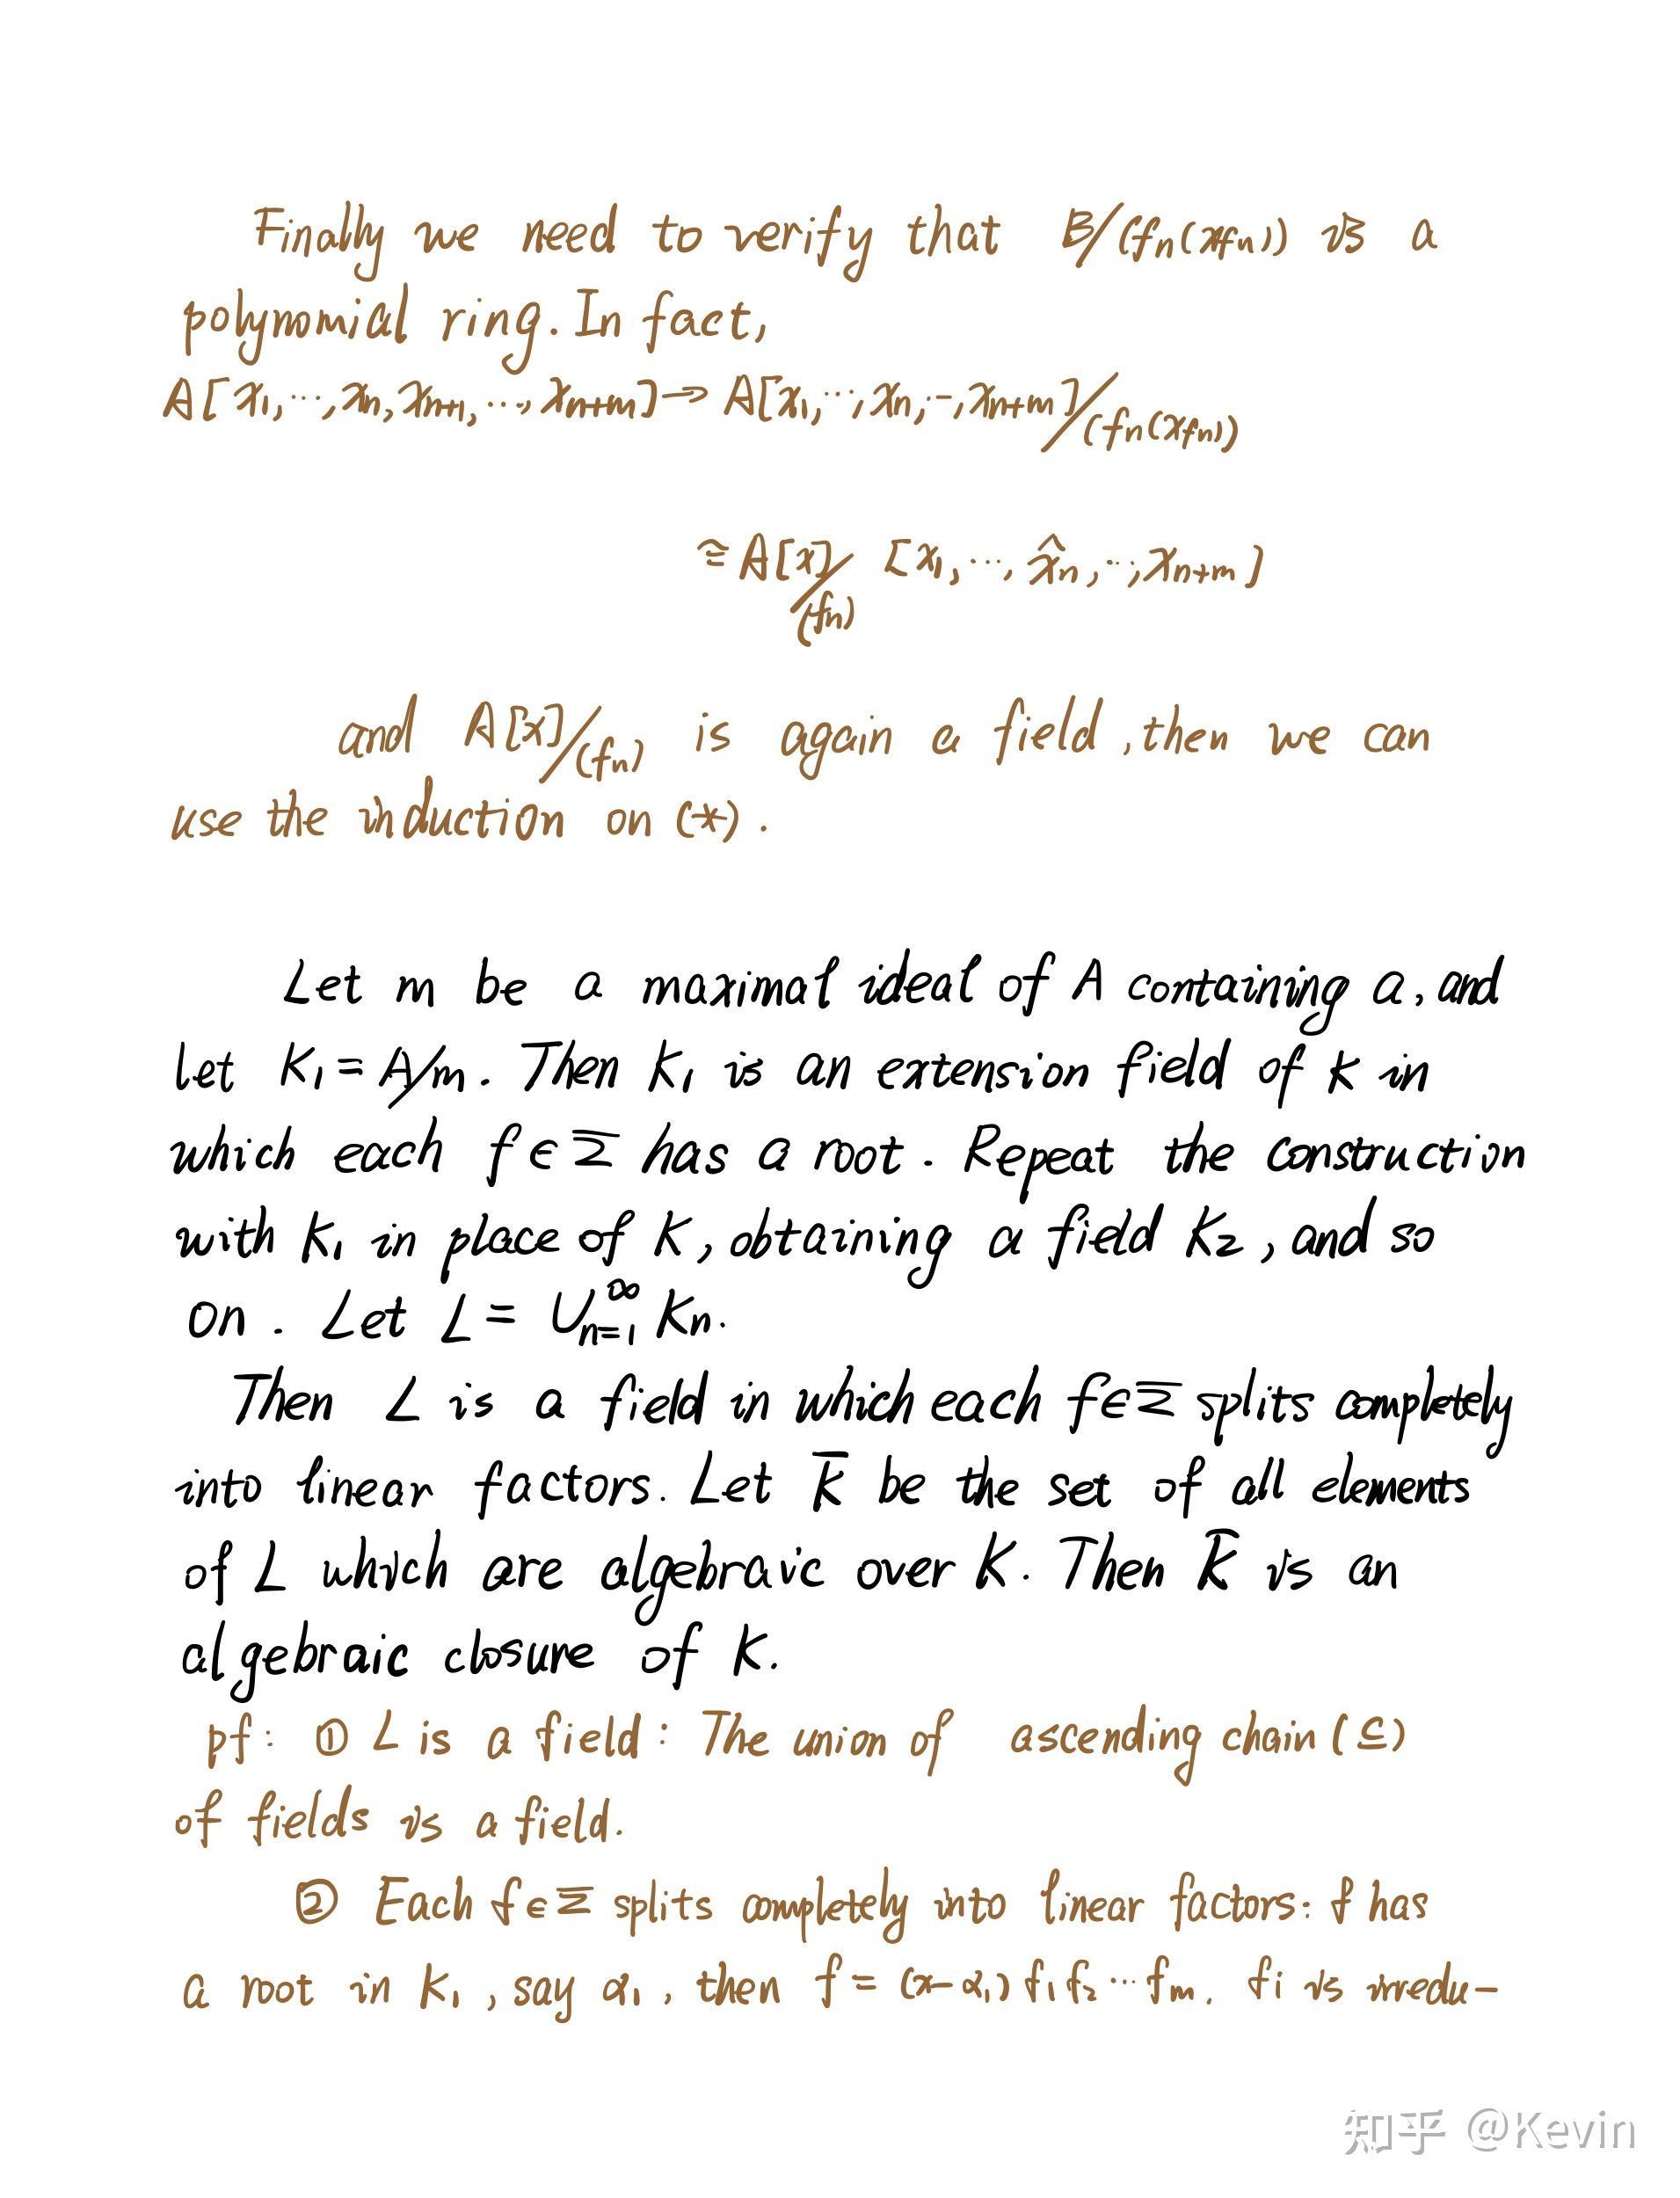 Finally we need to verify that B/(fn(xfn)) is a
polynomial ring. In fact,
A[x1,⋯,xn,xn+1,⋯,xn+m]→A[x1,⋯,xn,⋯,xn+m]/(fn(xfn))
≅A[x]/(fn) [x1,⋯,x̂n,⋯,xn+m]
and A[x]/(fn) is again a field, then we can
use the induction on (*).
Let m be a maximal ideal of A containing a, and
let K1=A/m. Then K1 is an extension field of K in
which each f∈Σ has a root. Repeat the construction
with K1 in place of K, obtaining a field K2, and so
on. Let L=∪_{n=1}^∞ Kn.
Then L is a field in which each f∈Σ splits completely
into linear factors. Let K̄ be the set of all elements
of L which are algebraic over K. Then K̄ is an
algebraic closure of K.
pf: ① L is a field: The union of ascending chain (⊆)
of fields is a field.
② Each f∈Σ splits completely into linear factors: f has
a root in K1, say α1, then f=(x-α1)f1f2⋯fm. fi is irredu-
知乎 @Kevin